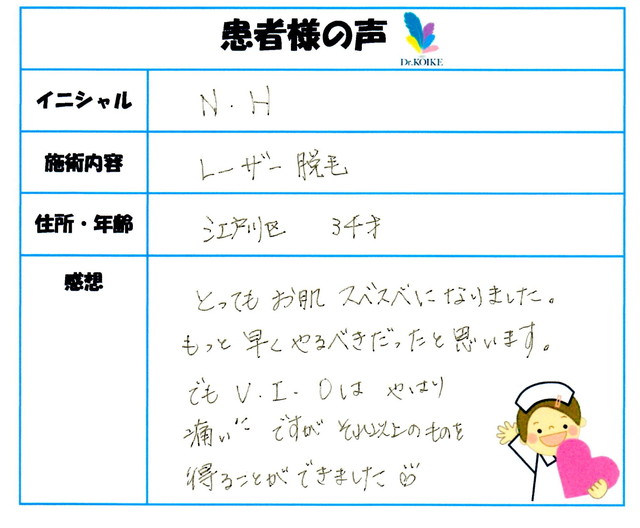 患者様の声
Dr.KOIKE
イニシャル N.H
施術内容 レーザー脱毛
住所・年齢 江戸川区 34才
感想
とっても お肌 スベスベに なりました。
もっと 早く やるべきだったと 思います。
でも V.I.Oは やはり
痛い ですが それ以上のものを
得ることが できました